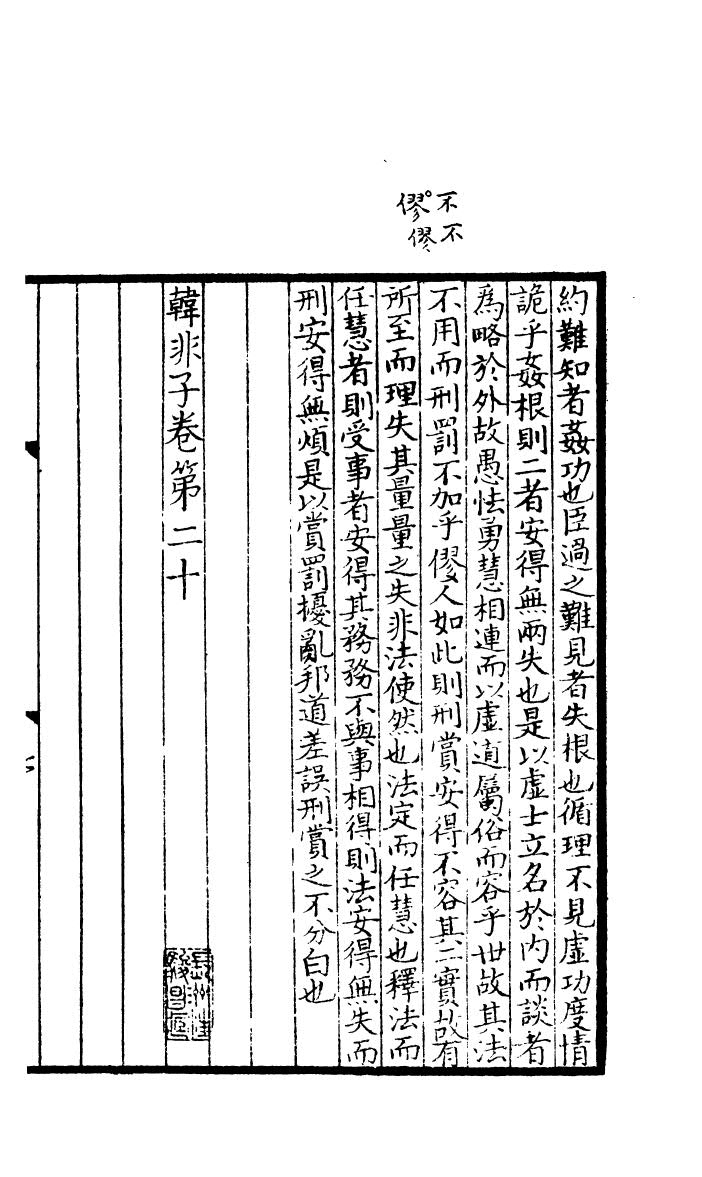 不不
僇僇
約難知者姦功也臣過之難見者失根也循理不見虛功度情
詭乎姦根則二者安得無兩失也是以虛士立名於内而談者
爲略於外故愚怯勇慧相連而以虛道屬俗而容乎世故其法
不用而刑罰不加乎僇人如此則刑賞安得不容其二實故有
所至而理失其量量之失非法使然也法定而任慧也釋法而
任慧者則受事者安得其務務不與事相得則法安得無失而
刑安得無煩是以賞罰擾亂邦道差誤刑賞之不分白也
韓非子卷第二十